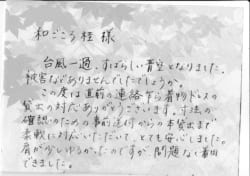 和ごころ 様
台風一過、すばらしい青空となりました。
被害などありませんでしたでしょうか。
この度は直前の連絡乍ら着物ドレスの
貸出の対応ありがとうございます。寸法の
確認のための事前送付からの本貸出まで
柔軟に対応いただいて、とても安心しました。
肩が少しゆるかったのですが、問題なく着用
できました。